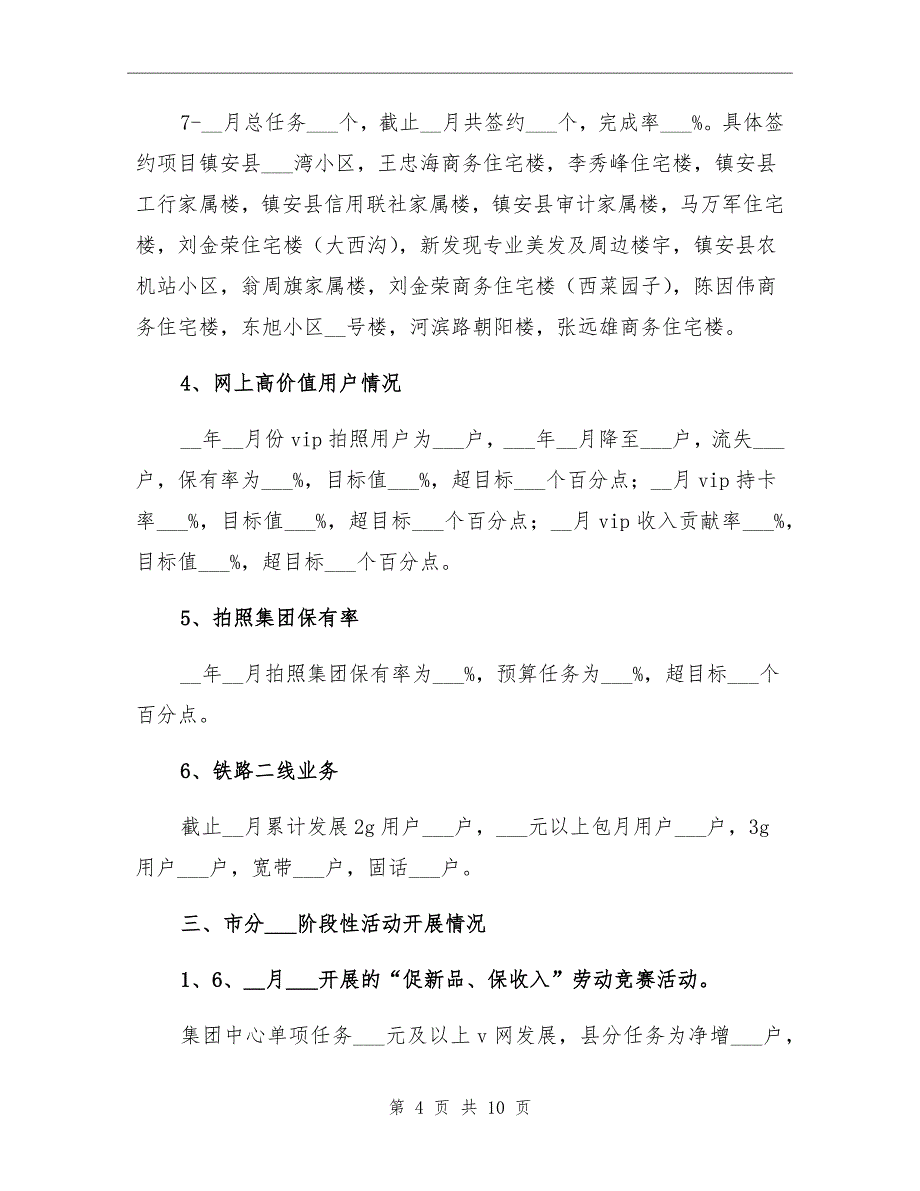 7-__月总任务___个，截止__月共签约___个，完成率___%。具体签
约项目镇安县___湾小区，王忠海商务住宅楼，李秀峰住宅楼，镇安县
工行家属楼，镇安县信用联社家属楼，镇安县审计家属楼，马万军住宅
楼，刘金荣住宅楼（大西沟），新发现专业美发及周边楼宇，镇安县农
机站小区，翁周旗家属楼，刘金荣商务住宅楼（西菜园子），陈因伟商
务住宅楼，东旭小区__号楼，河滨路朝阳楼，张远雄商务住宅楼。
4、网上高价值用户情况
__年__月份vip拍照用户为___户，___年__月降至___户，流失___
户，保有率为___%，目标值___%，超目标___个百分点；__月vip持卡
率___%，目标值___%，超目标___个百分点；__月vip收入贡献率___%，
目标值___%，超目标___个百分点。
5、拍照集团保有率
__年__月拍照集团保有率为___%，预算任务为___%，超目标___个
百分点。
6、铁路二线业务
截止__月累计发展2g用户___户，___元以上包月用户___户，3g
用户___户，宽带___户，固话___户。
三、市分___阶段性活动开展情况
1、6、__月___开展的“促新品、保收入”劳动竞赛活动。
集团中心单项任务___元及以上v网发展，县分任务为净增___户，
第 4 页 共 10 页